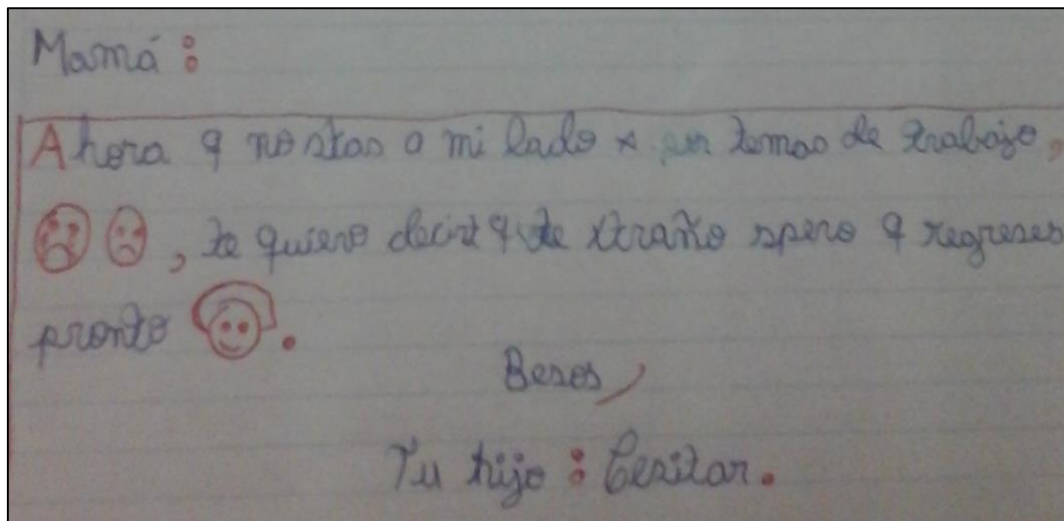 Mamá :
Ahora q no stas a mi lado x temas de trabajo,
, te quiero decir q te xtraño spero q regreses
pronto .
Besos,
Tu hijo : Cesitar.